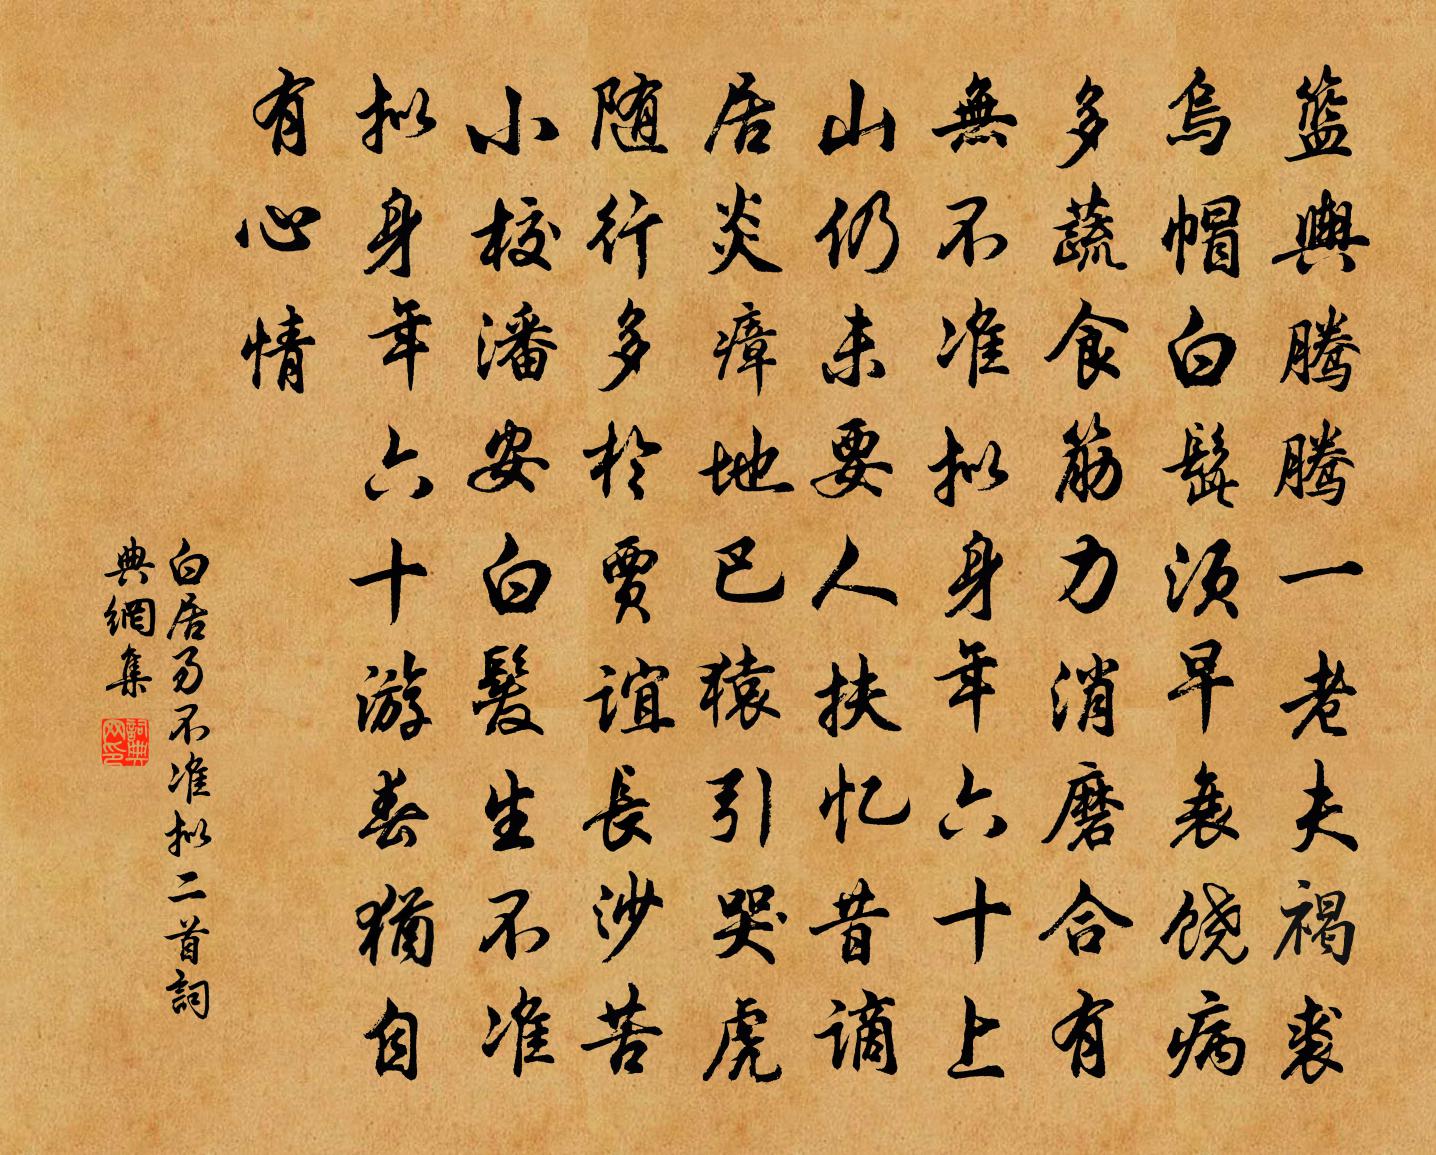 籃輿騰騰一老夫褐裘
烏帽白髭須早衰饒病
多蔬食筋力消磨合有
無不准拟身年六十上
山仍未要人扶忆昔谪
居炎瘴地巴猿引哭虎
随行多於賈誼長沙苦
小校潘安白髮生不准
拟身年六十游春猶自
有心情
白居易不准拟二首詞
典網集
詞典網印